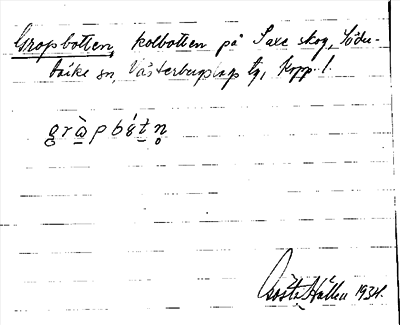 Gropbotten, kolbotten på Saxe skog, Söder-
bärke sn, Västerbergslags tg, Kopp. l.
gràpbót̠n̥
Gösta Hallen 1934.